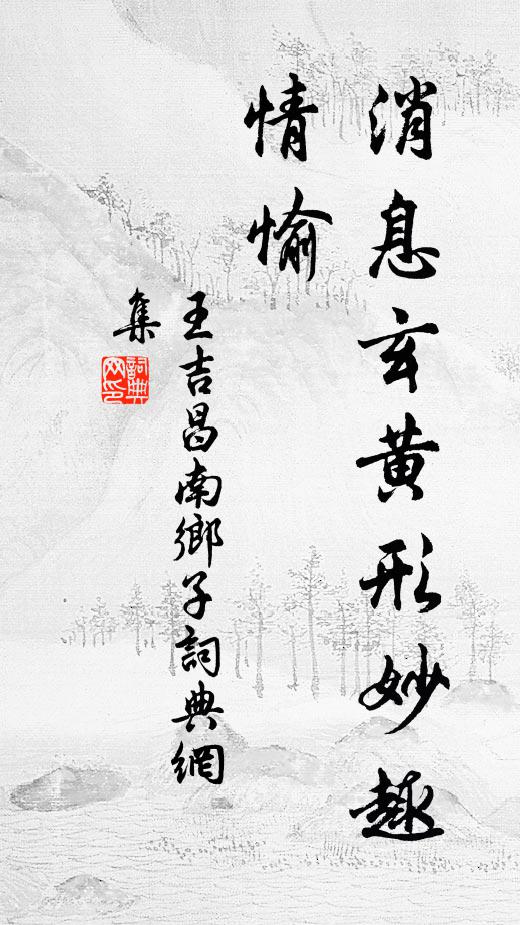 消息玄黃形妙趣
情愉
王吉昌南鄉子詞典網
集
詞典
网印